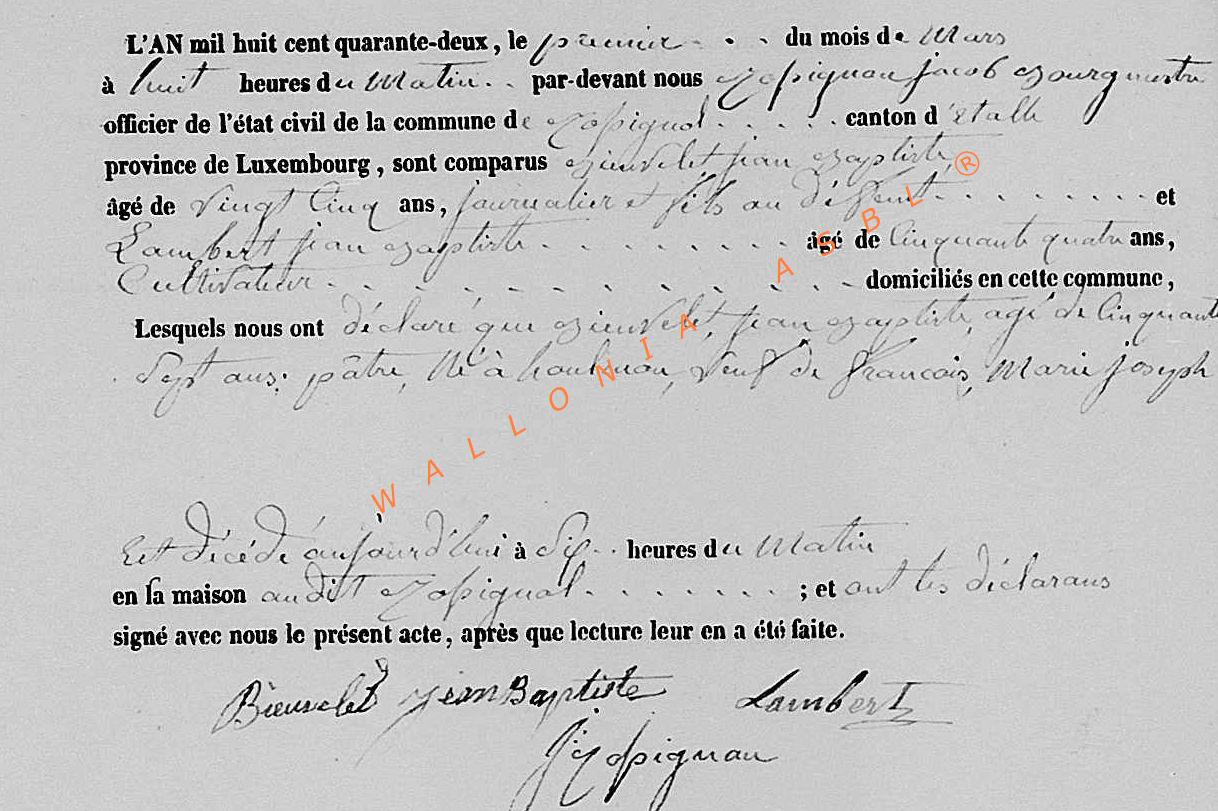 L'AN mil huit cent quarante-deux, le premier du mois de Mars
à huit heures du Matin par-devant nous Rossignon jacob Bourgmestre
officier de l'état civil de la commune de Rossignol canton d'étalle
province de Luxembourg, sont comparus Bieuvelet, jean Baptiste,
âgé de Vingt Cinq ans, journalier et fils au défunt et
Lambert jean Baptiste âgé de Cinquante quatre ans,
Cultivateur domiciliés en cette commune,
Lesquels nous ont déclaré que Bieuvelet, jean Baptiste, agé de Cinquante
Sept ans, pâtre, Né à houdemon, Veuf de francois, Marie joseph
Est décédé aujourd'hui à Six heures du Matin
en sa maison audit Rossignol ; et ont les déclarans
signé avec nous le présent acte, après que lecture leur en a été faite.
Bieuvelet jean Baptiste Lambert
J Rossignon
WALLONIA ASBL ®